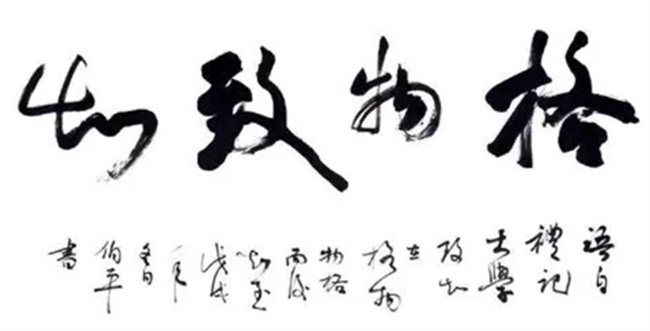 格物致知
語自
禮記
大學
致知
在
格物
物格
而後
知至
戊戌
伯平
書